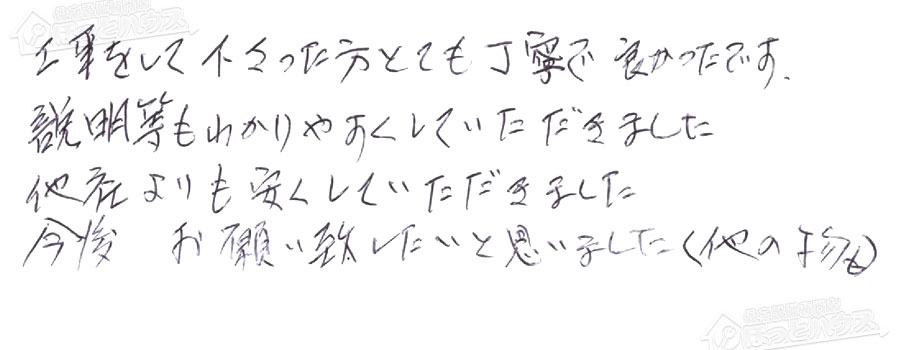 工事をして下さった方とても丁寧で良かったです.
説明等もわかりやすくしていただきました
他社よりも安くしていただきました
今後 お願い致したいと思いました(他の物も)
ほっとハウス
ほっとハウス